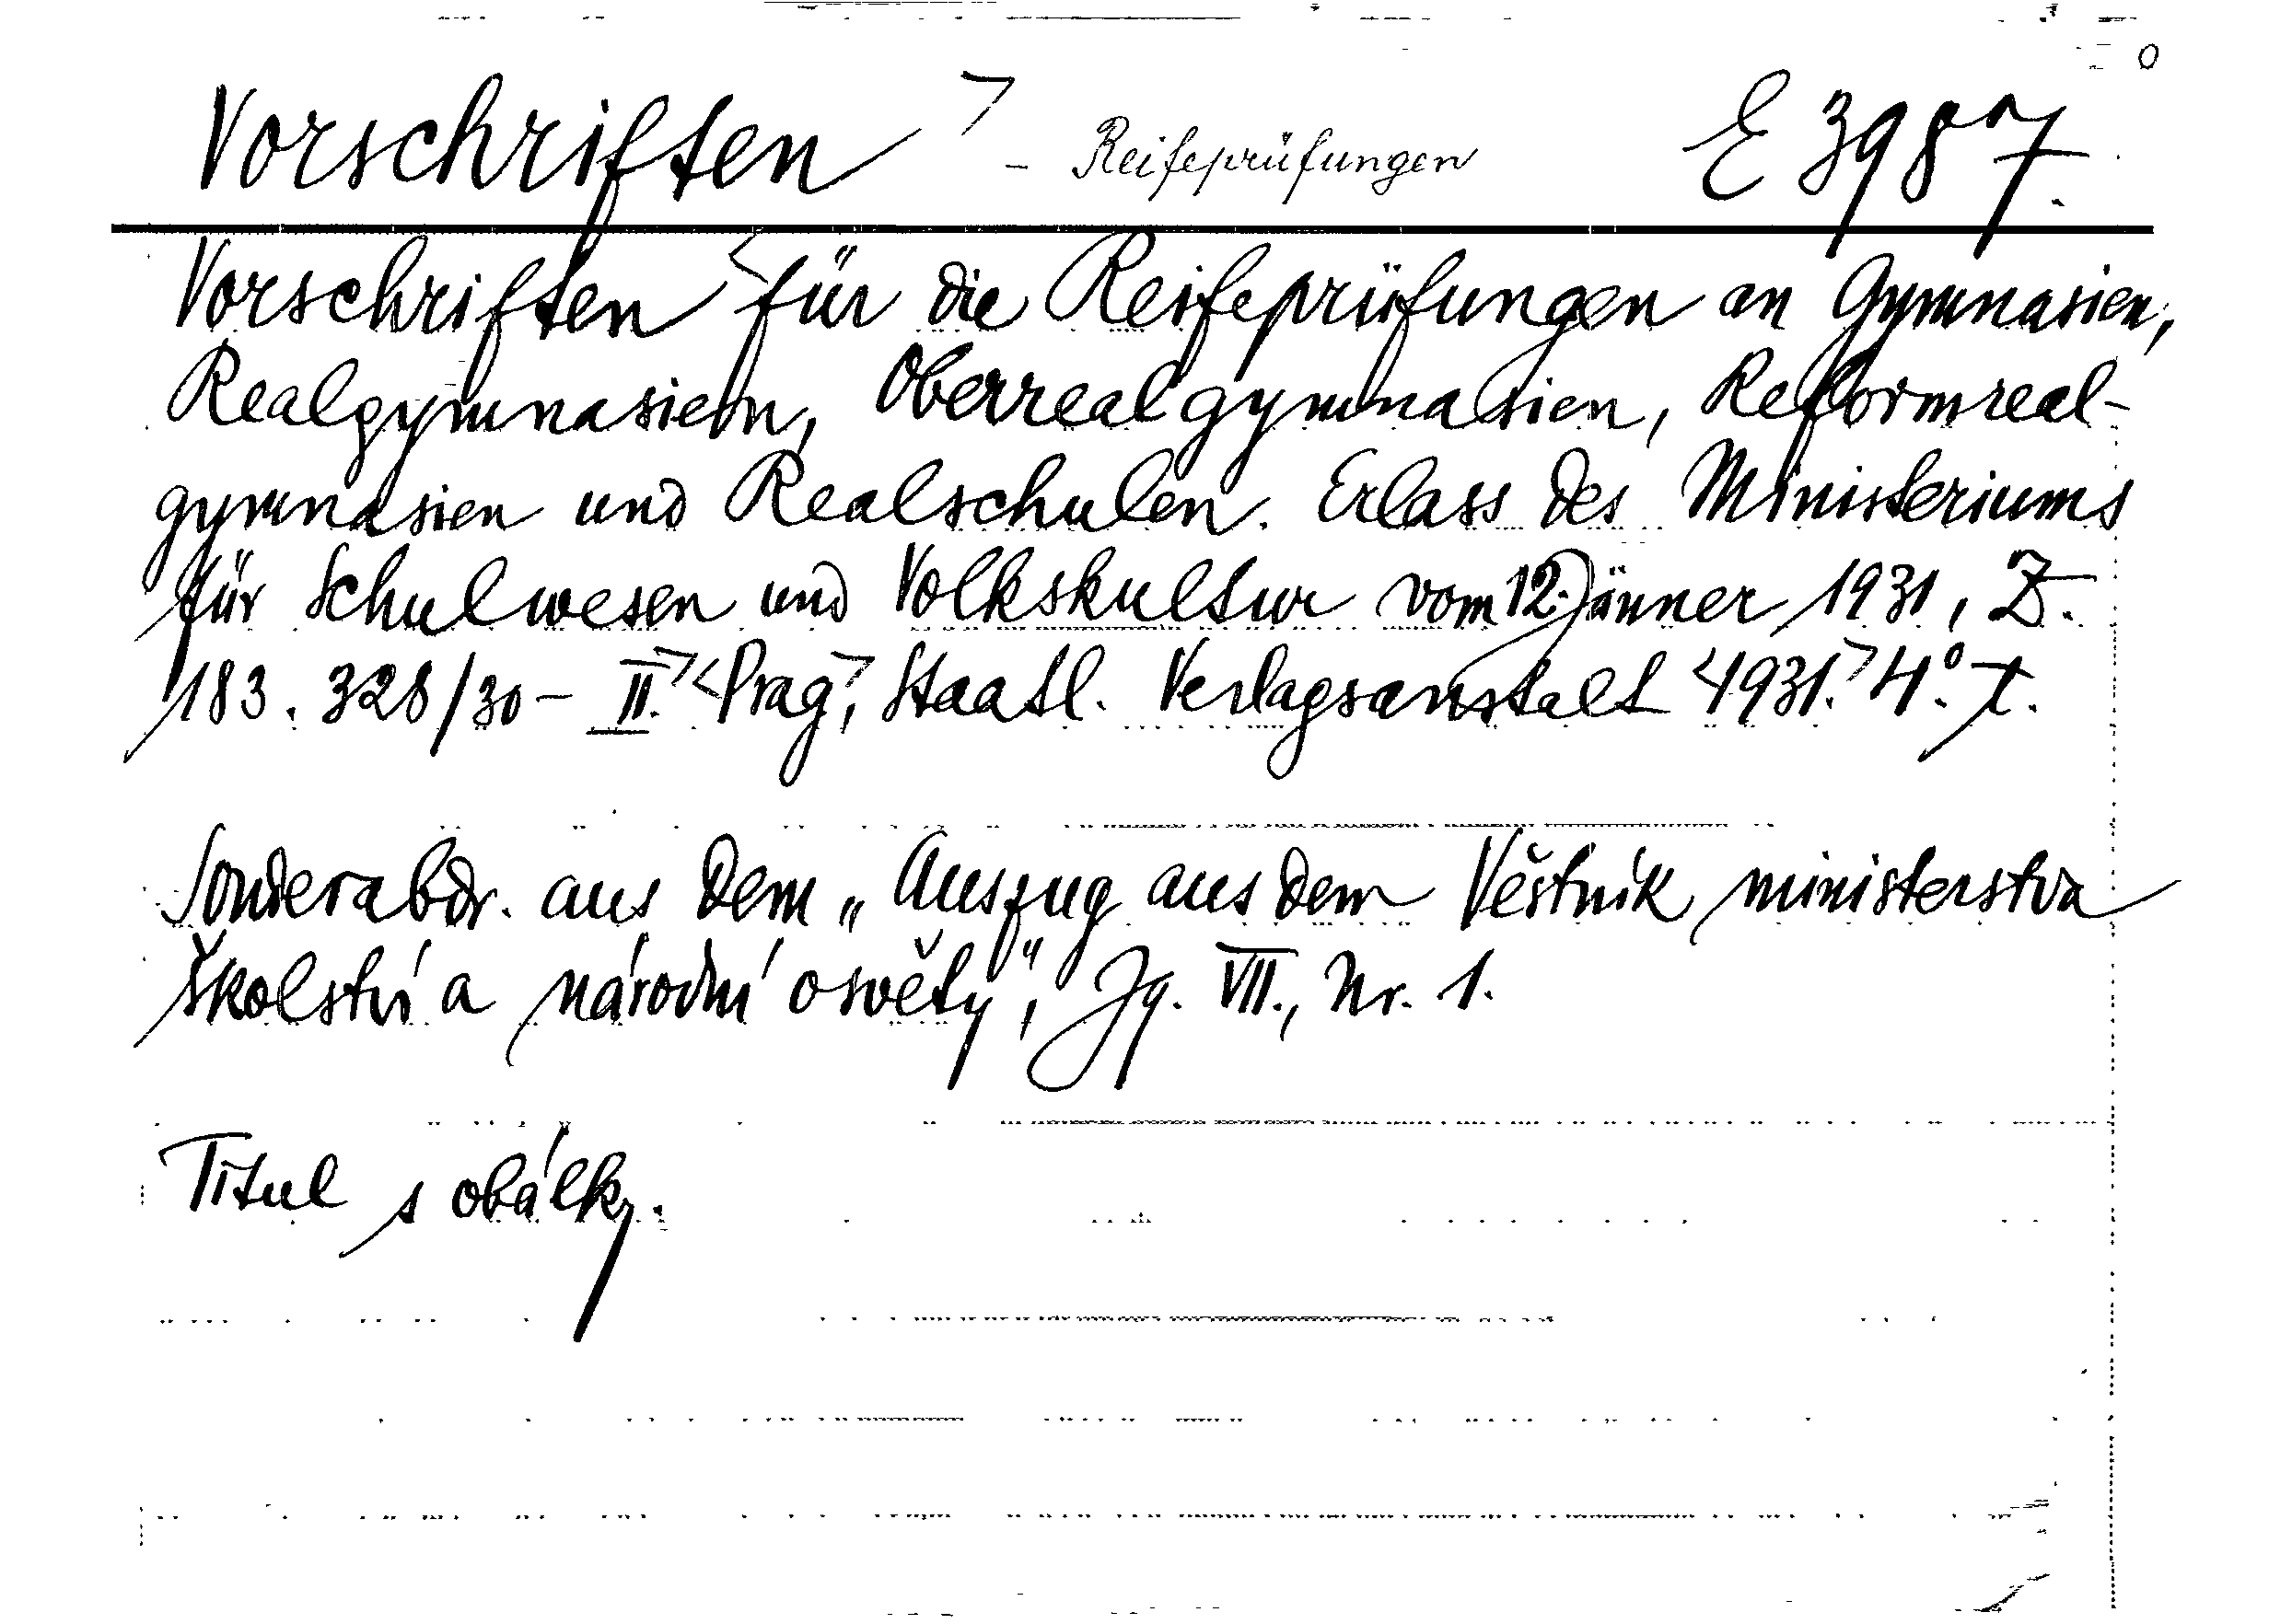 Vorschriften - Reifeprüfungen E 3987.
Vorschriften für die Reifeprüfungen an Gymnasien,
Realgymnasien, Oberrealgymnasien, Reformreal-
gymnasien und Realschulen. Erlass des Ministeriums
für Schulwesen und Volkskultur vom 12. Jänner 1931, Z.
183.328/30 - II. Prag, Staatl. Verlagsanstalt 1931. 4°. t.
Sonderabdr. aus dem „Auszug aus dem Věstník ministerstva
školství a národní osvěty", Jg. VII., Nr. 1.
Titul s obálky.